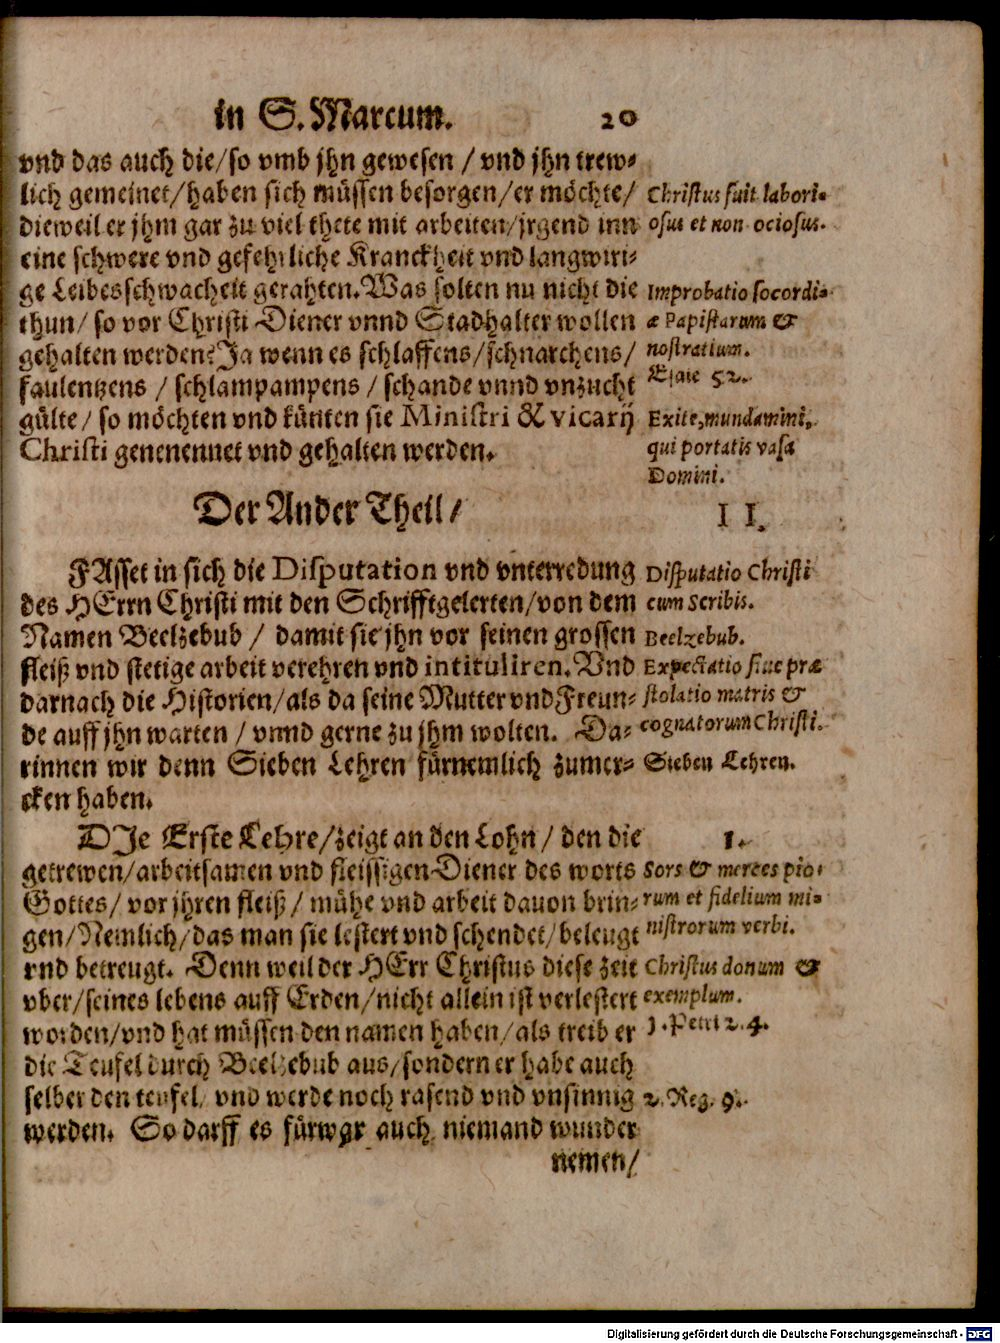 in S. Marcum. 20
vnd das auch die/so vmb jhn gewesen / vnd jhn trew-
lich gemeinet/haben sich müssen besorgen/er möchte/
dieweil er jhm gar zu viel thete mit arbeiten/jrgend inn
eine schwere vnd gefehrliche Kranckheit vnd langwiri-
ge Leibesschwacheit gerahten. Was solten nu nicht die
thun/ so vor Christi Diener vnnd Stadhalter wollen
gehalten werden? Ja wenn es schlaffens/schnarchens/
faulentzens / schlampampens / schande vnnd vnzucht
gülte/ so möchten vnd künten sie Ministri & vicarij
Christi genenennet vnd gehalten werden.
Christus fuit labori-
osus et non ociosus.
Improbatio socordi-
æ Papistarum &
nostratium.
Esaie 52.
Exite, mundamini,
qui portatis vasa
Domini.
Der Ander Theil/
II.
FAsset in sich die Disputation vnd vnterredung
des HErrn Christi mit den Schrifftgelerten/von dem
Namen Beelzebub / damit sie jhn vor seinen grossen
fleiß vnd stetige arbeit verehren vnd intituliren. Vnd
darnach die Historien/als da seine Mutter vnd Freun-
de auff jhn warten / vnnd gerne zu jhm wolten. Da-
rinnen wir denn Sieben Lehren fürnemlich zumer-
cken haben.
Disputatio Christi
cum Scribis.
Beelzebub.
Expectatio siue præ
stolatio matris &
cognatorum Christi.
Sieben Lehren.
DJe Erste Lehre/zeigt an den Lohn / den die
getrewen/arbeitsamen vnd fleissigen Diener des worts
Gottes/ vor jhren fleiß / mühe vnd arbeit dauon brin-
gen/Nemlich/das man sie lestert vnd schendet/beleugt
vnd betreugt. Denn weil der HErr Christus diese zeit
vber/seines lebens auff Erden/nicht allein ist verlestert
worden/vnd hat müssen den namen haben/als treib er
die Teufel durch Beelzebub aus/sondern er habe auch
selber den teufel/ vnd werde noch rasend vnd vnsinnig
werden. So darff es fürwar auch niemand wunder
nemen/
1.
Sors & merces pio-
rum et fidelium mi-
nistrorum verbi.
Christus donum &
exemplum.
1. Petri 2. 4.
2. Reg. 9.
Digitalisierung gefördert durch die Deutsche Forschungsgemeinschaft - DFG